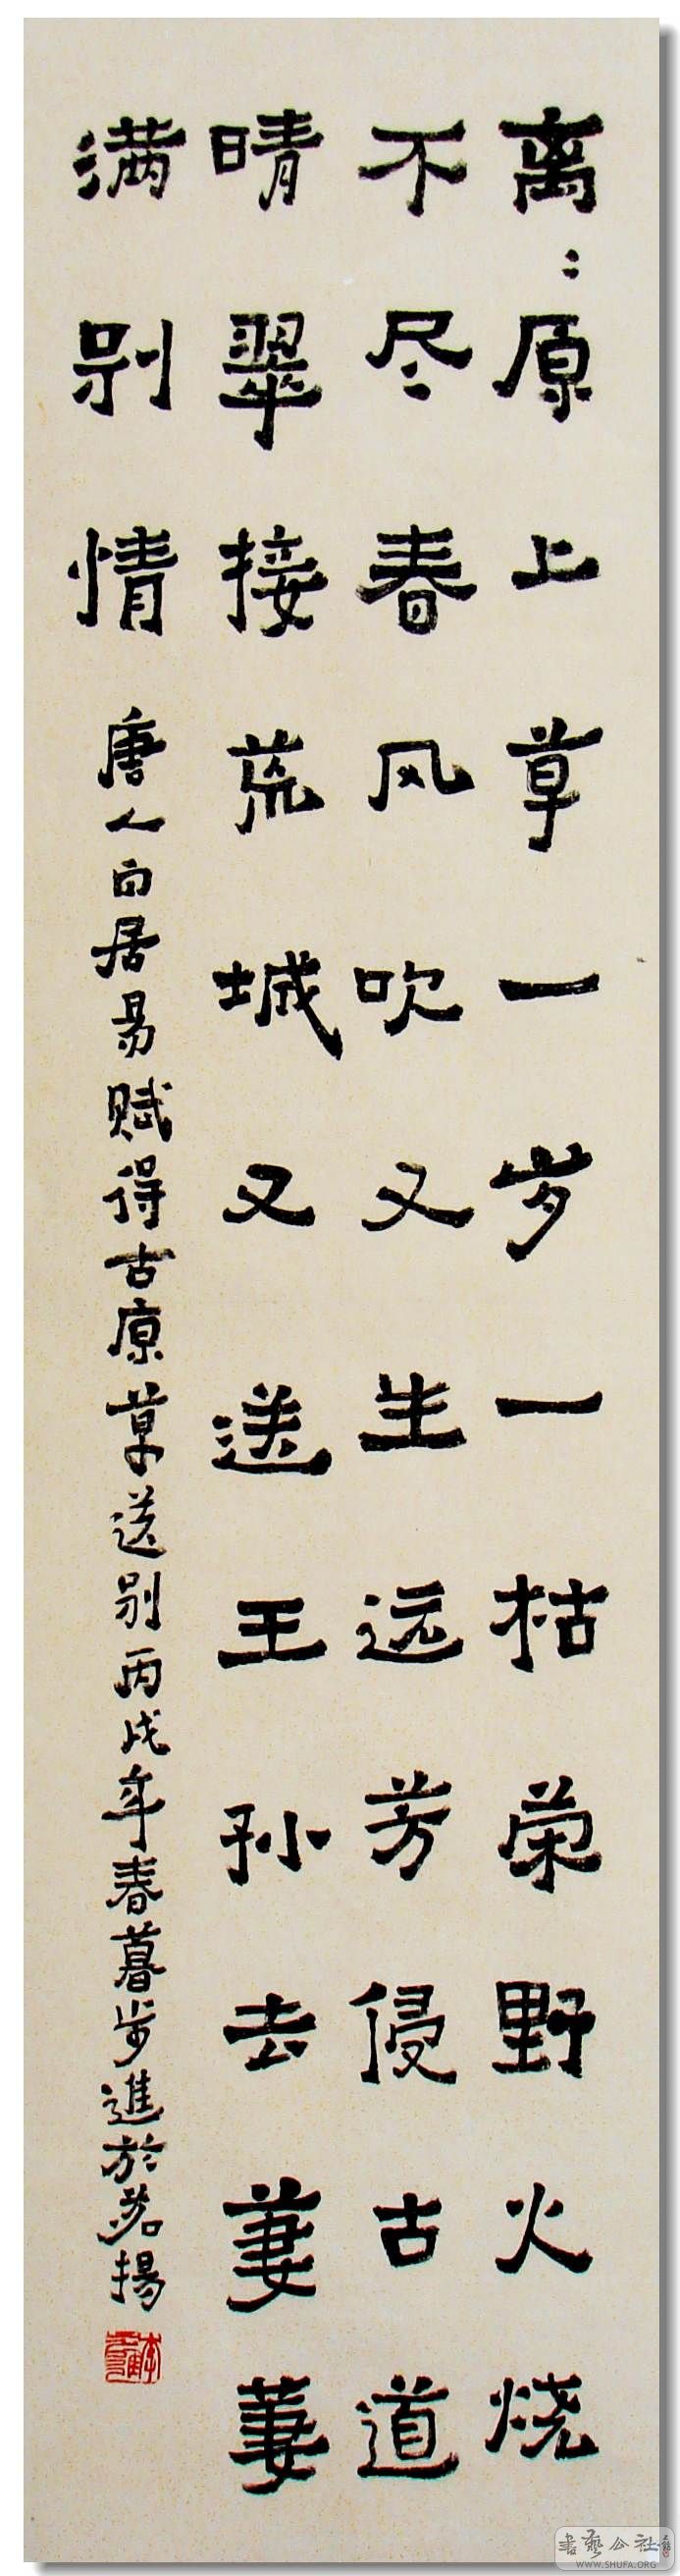 离：原上草一岁一枯荣野火烧
不尽春风吹又生远芳侵古道
晴翠接荒城又送王孙去萋萋
满别情
唐人白居易赋得古原草送别丙戌年春暮步進於茗揚
書艺公社
WWW.SHUFA.ORG